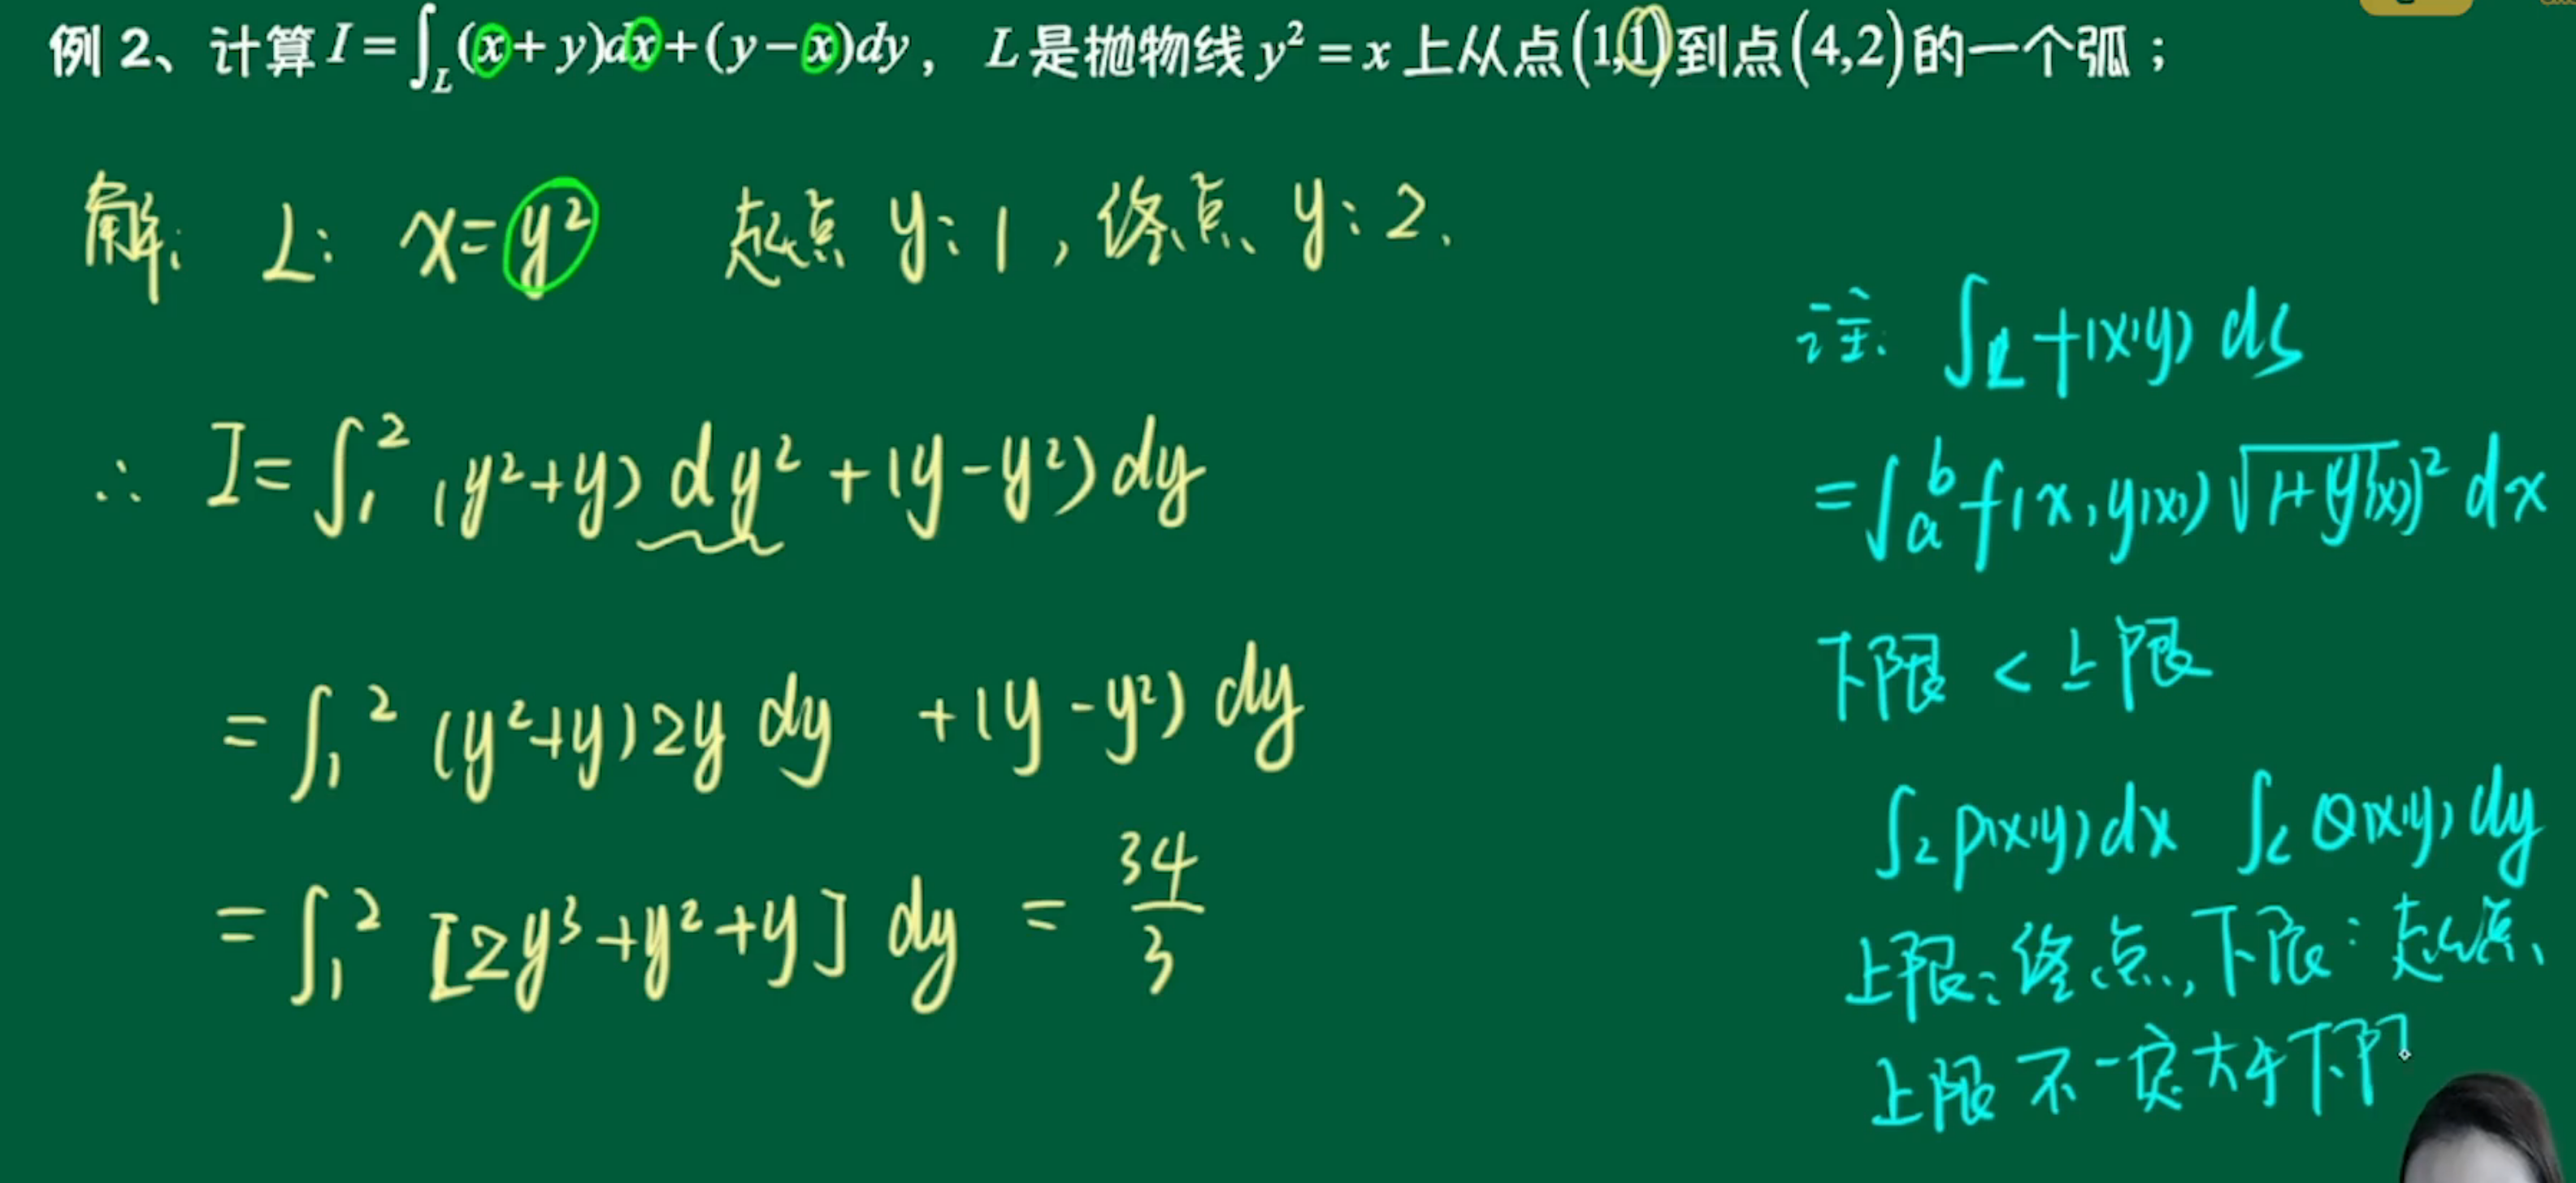 例 2、计算 I = ∫_L (x + y)dx + (y − x)dy， L 是抛物线 y² = x 上从点 (1,1) 到点 (4,2) 的一个弧；
解: L: x = y² 起点 y: 1 , 终点 y: 2.
∴ I = ∫₁² (y²+y) dy² + (y - y²) dy
= ∫₁² (y²+y) 2y dy + (y - y²) dy
= ∫₁² [2y³ + y² + y] dy = 34/3
注: ∫_L f(x,y) ds
= ∫_a^b f(x, y(x)) √(1+(y'(x))²) dx
下限 < 上限
∫_L P(x,y) dx ∫_L Q(x,y) dy
上限: 终点, 下限: 起点
上限 不一定大于下